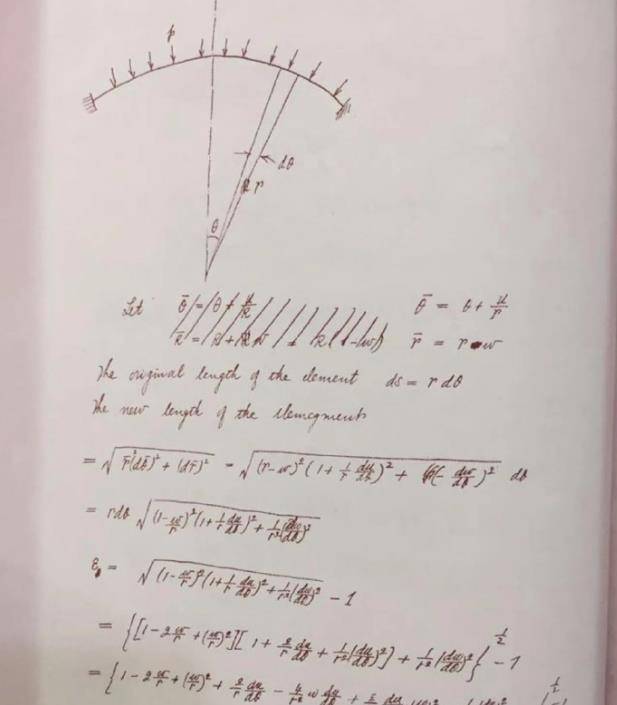 p
dθ
r
θ
Let θ̄ = θ + u/r
r̄ = r - w
The original length of the element ds = r dθ
The new length of the
= √(r̄²(dθ̄)² + (dr̄)²) = √((r-w)²(1 + 1/r du/dθ)² + (- dw/dθ)²) dθ
= rdθ √((1 - w/r)²(1 + 1/r du/dθ)² + 1/r²(dw/dθ)²)
= √((1 - w/r)²(1 + 1/r du/dθ)² + 1/r²(dw/dθ)²) - 1
= {[1 - 2 w/r + (w/r)²][1 + 2/r du/dθ + 1/r²(du/dθ)²] + 1/r²(dw/dθ)²}^½ - 1
= {1 - 2 w/r + (w/r)² + 2/r du/dθ - 4/r² w du